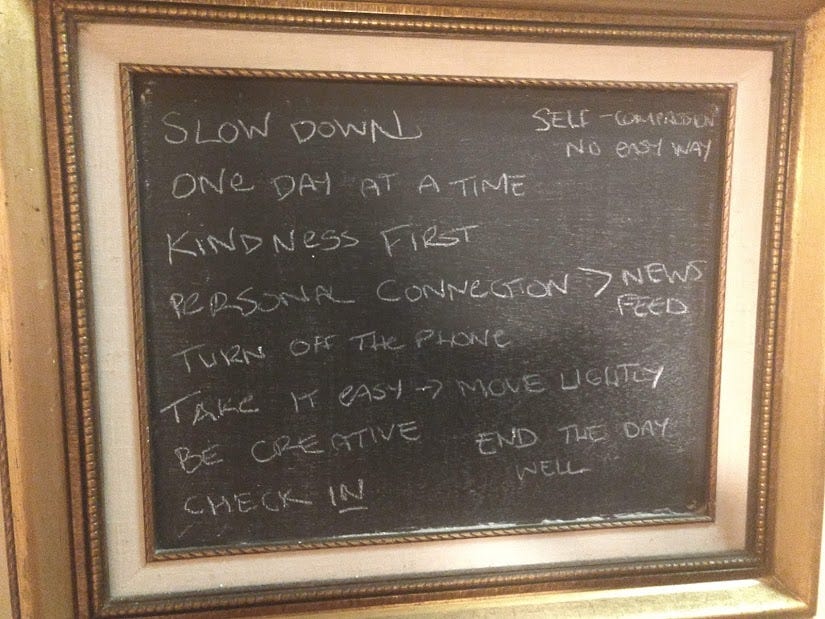 SLOW DOWN
SELF-COMPASSION
NO EASY WAY
ONE DAY AT A TIME
KINDNESS FIRST
PERSONAL CONNECTION > NEWS
FEED
TURN OFF THE PHONE
TAKE IT EASY → MOVE LIGHTLY
BE CREATIVE
END THE DAY
WELL
CHECK IN